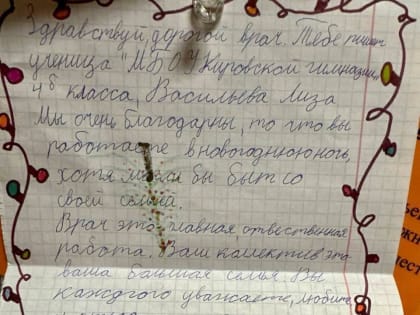 Здравствуй, дорогой врач. Тебе пишет
ученица "МБОУ Кировской гимназии
4б класса Васильева Лиза
Мы очень благодарны, то что вы
работаете в новогоднюю ночь,
хотя могли бы быт со
своей семьёй.
Врач это главная отвественная
работа. Ваш колектив это
ваша большая семья. Вы
каждого уважаете, любите